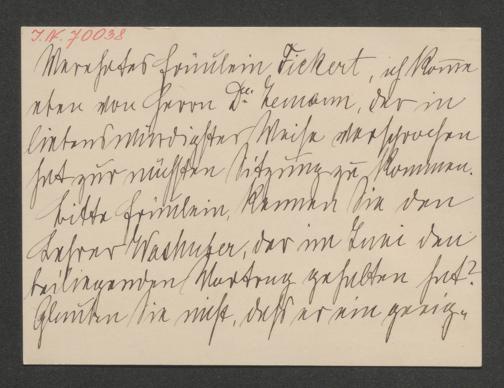 I.N. 70038
Verehrtes Fräulein Fickert, ich komme
eben von Herrn Dr. Zemann, der in
liebenswürdigster Weise versprochen
hat zur nächsten Sitzung zu kommen.
Bitte Fräulein, kennen Sie den
Lehrer, der im Juni den
beiliegenden Vortrag gehalten hat?
Glauben Sie nicht, daß er ein geeig-